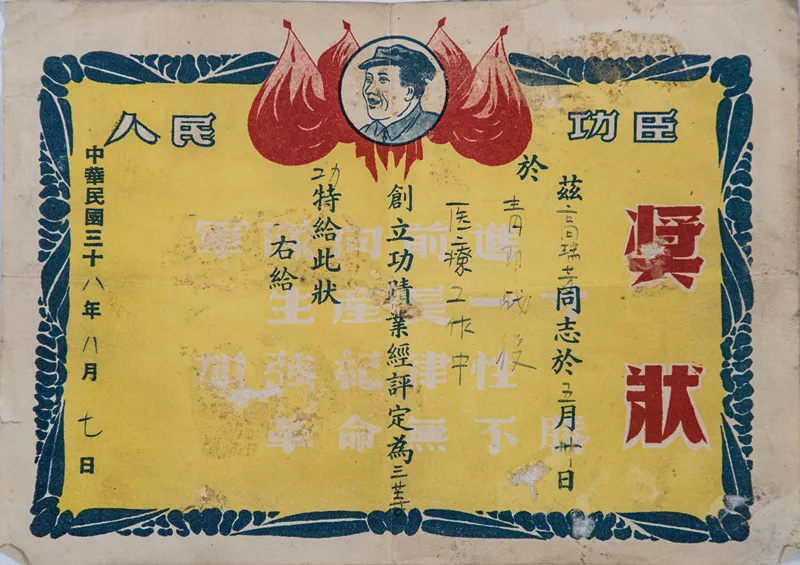 人民
功臣
奬狀
茲高瑞芳同志於五月卅日
於青即战役
医療工作中
創立功蹟業經評定為三等
功特給此狀
右給
中華民國三十八年八月七日
軍隊向前進
生產長一寸
加強紀律性
革命無不勝